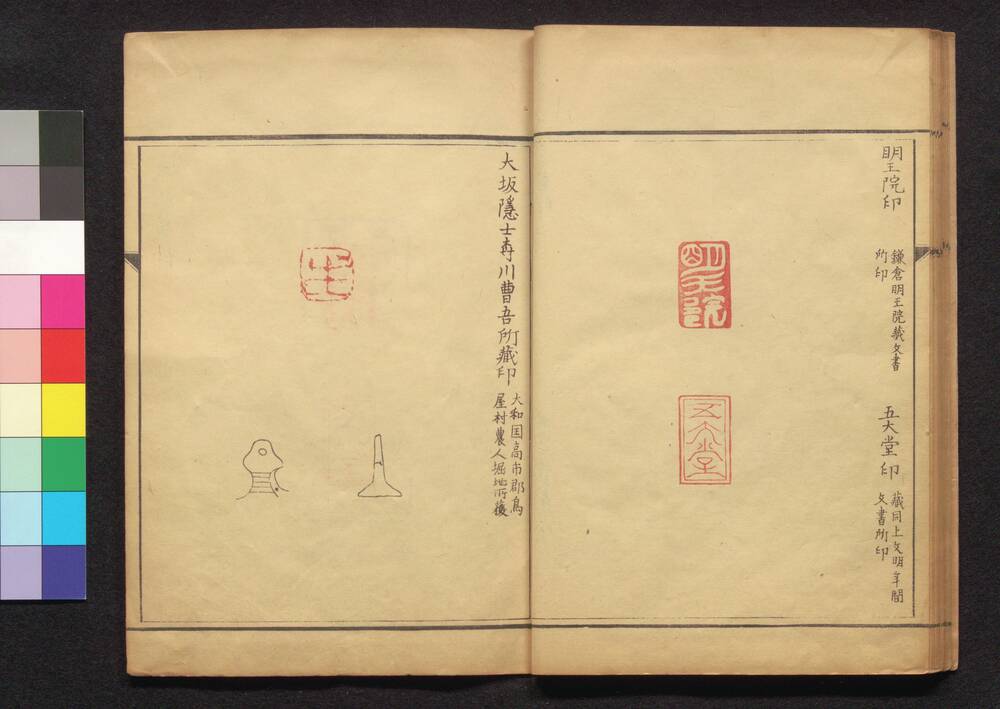 明王院印
鎌倉明王院蔵文書
所印
五大堂印
蔵同上文明年間
文書所印
明王院
五大堂
大坂隱士寿川曹吾所藏印
大和国高市郡鳥
屋村農人堀地所獲